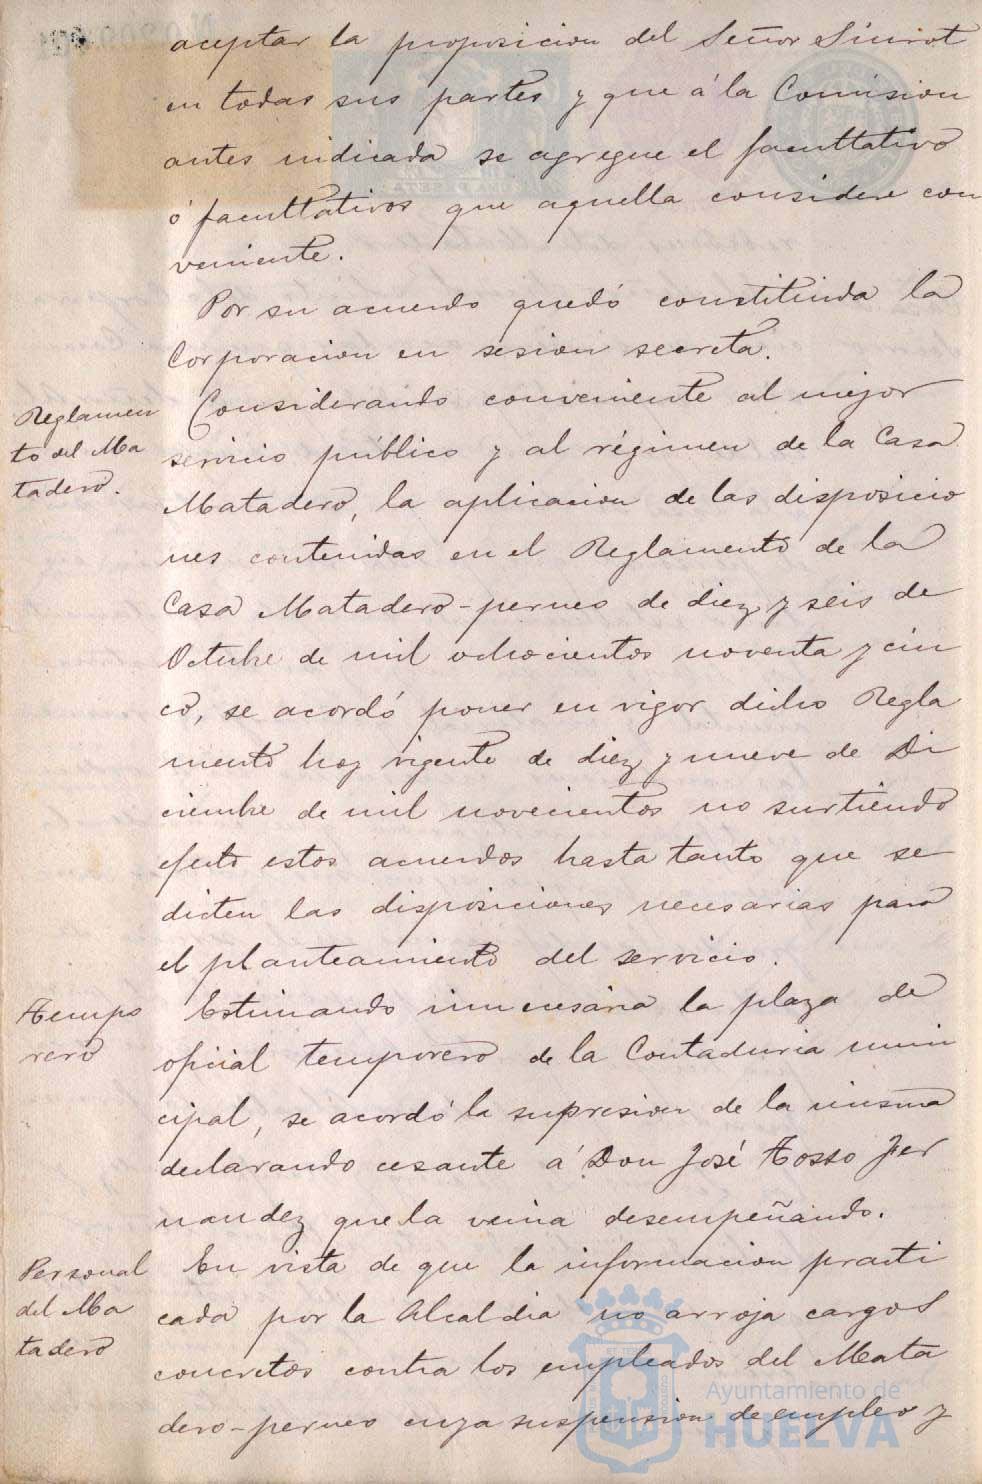 aceptar la proposicion del Señor Siurot
en todas sus partes y que á la Comision
antes indicada se agregue el facultativo
ó facultativos que aquella considere con
veniente.
Por su acuerdo quedó constituida la
Corporacion en sesion secreta.
Reglamen
to del Ma
tadero.
Considerando conveniente al mejor
servicio público y al régimen de la Casa
Matadero, la aplicacion de las disposicio
nes contenidas en el Reglamento de la
Casa Matadero-perneo de diez y seis de
Octubre de mil ochocientos noventa y cin
co, se acordó poner en vigor dicho Regla
mento hoy vigente de diez y nueve de Di
ciembre de mil novecientos no surtiendo
efecto estos acuerdos hasta tanto que se
dicten las disposiciones necesarias para
el planteamiento del servicio.
Tempo
rero
Estimando innecesaria la plaza de
oficial temporero de la Contaduria muni
cipal, se acordó la supresion de la misma
declarando cesante á Don José Tosso Fer
nandez que la venia desempeñando.
Personal
del Ma
tadero
En vista de que la informacion practi
cada por la Alcaldia no arroja cargos
concretos contra los empleados del Mata
dero-perneo cuya suspension de empleo y
Ayuntamiento de
HUELVA